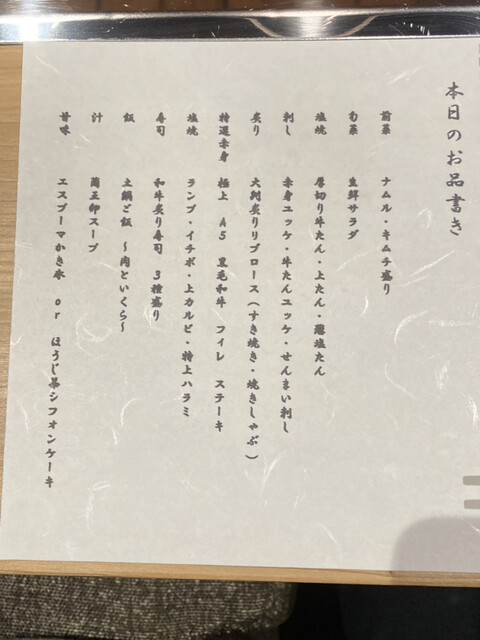 本日のお品書き
前菜 ナムル・キムチ盛り
旬菜 生鮮サラダ
塩焼 厚切り牛たん・上たん・葱塩たん
刺し 赤身ユッケ・牛たんユッケ・せんまい刺し
炙り 大判炙りリブロース（すき焼き・焼きしゃぶ）
特選赤身 極上 A5 黒毛和牛 フィレ ステーキ
塩焼 ランプ・イチボ・上カルビ・特上ハラミ
寿司 和牛炙り寿司 3種盛り
飯 土鍋ご飯 ～肉といくら～
汁 蘭王卵スープ
甘味 エスプーマかき氷 or ほうじ茶シフォンケーキ